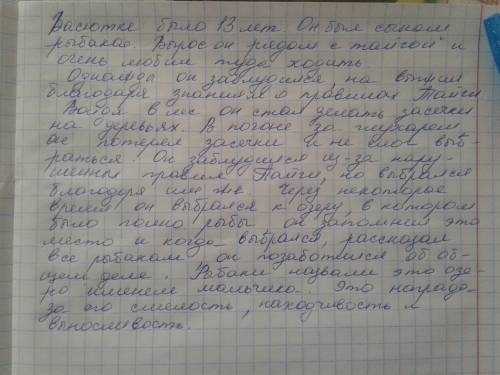 Васютке было 13 лет. Он был сыном
рыбака. Вырос он рядом с тайгой и
очень любил туда ходить.
Однажды он заблудился, на выжил
благодаря знаниям о правилах Тайги
Войдя в лес он стал делать засечки
на деревьях. В погоне за глухарем
он потерял засечки и не смог выб-
раться. Он заблудился из-за нару-
шенных правил Тайги, но выбрался
благодоря им же. Через некоторое
время он выбрался к озеру, в котором
было полно рыбы он запомнил это
место и когда выбрался, рассказал
все рыбакам он позаботился об об-
щем деле. Рыбаки назвали это озе-
ро именем мальчика. Это награда
за его смелость, находчивость и
выносливость.